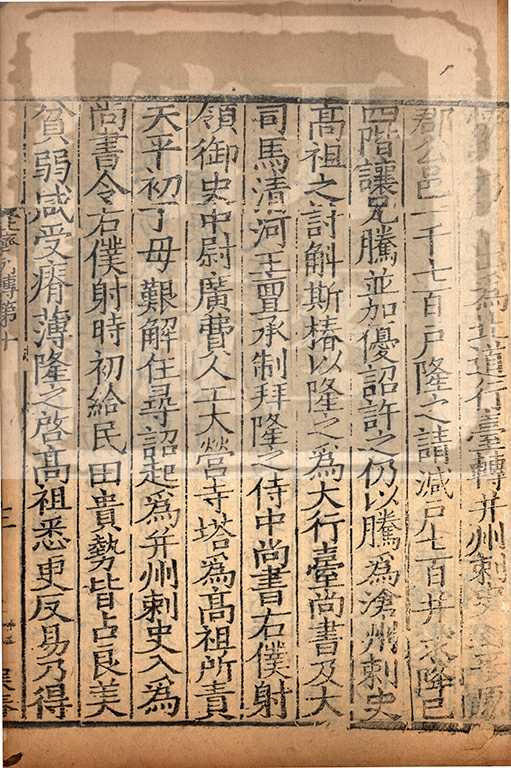 為北道行臺轉并州刺史
郡公邑一千七百戶隆之請減戶七百并求降己
四階讓兄騰並加優詔許之仍以騰為滄州刺史
高祖之討斛斯椿以隆之為大行臺尚書及大
司馬清河王亶承制拜隆之侍中尚書右僕射
領御史中尉廣費久工大營寺塔為高祖所責
天平初丁母艱解任尋詔起為并州刺史入為
尚書令右僕射時初給民田貴勢皆占良美
貧弱咸受瘠薄隆之啓高祖悉更反易乃得
傳第十